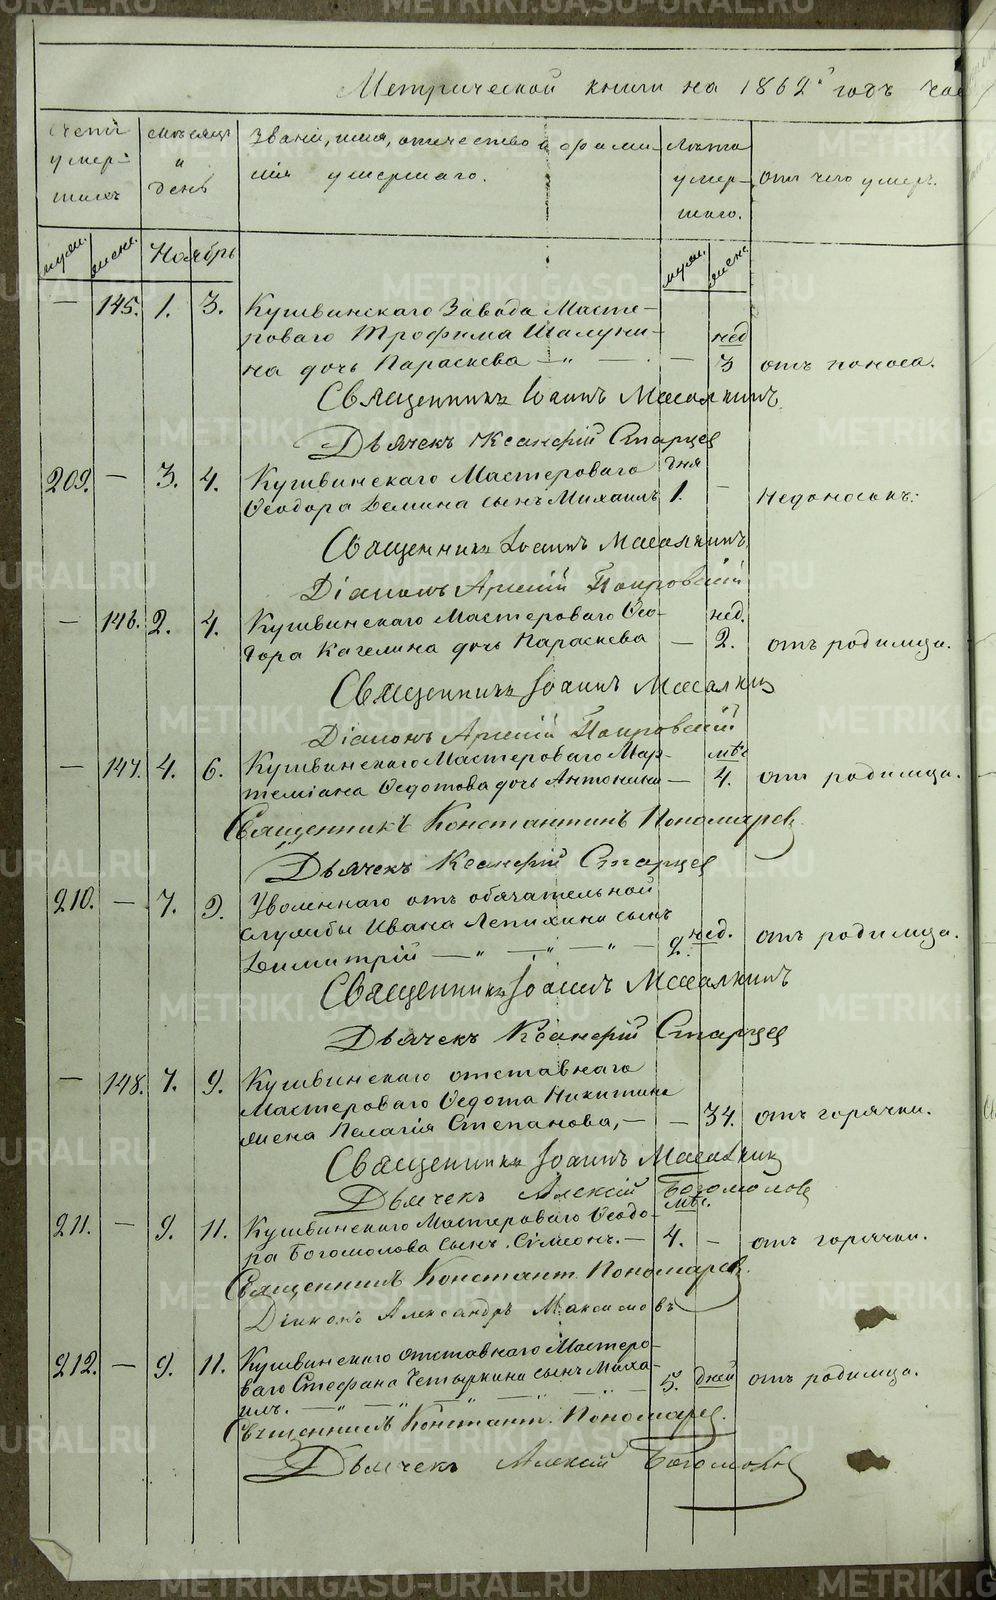 Метрической книги на 1862й годъ час
Счетъ умер- шихъ
Мѣсяцъ и день
Званіе, имя, отчество и фами-
лія умершаго.
Лѣта умер- шаго.
отъ чего умеръ.
муж. жен. Ноябрь муж. жен.
— 145. 1. 3. Кушвинскаго Завода Масте-
роваго Трофима Шалуни- нед
на дочь Параскева — „ — . — 3 отъ поноса.
Священникъ Іоаннъ Масалкинъ
Дьячекъ Ксанфій Старцев
209. — 3. 4. Кушвинскаго Мастероваго дня
Ѳеодора Демина сынъ Михаилъ 1. — Недоносокъ:
Священникъ Іоаннъ Масалкинъ
Діаконъ Арсеній Покровскій
— 146. 2. 4. Кушвинскаго Мастероваго Ѳео- нед.
дора Кагелина дочь Параскева — 2. отъ родимца.
Священникъ Іоаннъ Масалкин
Діаконъ Арсеній Покровскій
— 147. 4. 6. Кушвинскаго Мастероваго Мар- мѣс
теміана Ѳедотова дочь Антонина — 4. отъ родимца.
Священникъ Константинъ Пономарев
Дьячекъ Ксанфій Старцев
210. — 7. 9. Уволеннаго отъ обязательной
службы Ивана Лепихина сынъ нед.
Димитрій — „ — „ — „ — 2. отъ родимца.
Священникъ Іоаннъ Масалкинъ
Дьячекъ Ксанфій Старцев
— 148. 7. 9. Кушвинскаго отставнаго
Мастероваго Ѳедота Никитина
жена Пелагія Степанова, — — 34. отъ горячки.
Священникъ Іоаннъ Масалкин
Дьячекъ Алексій Богомолов
211. — 9. 11. Кушвинскаго Мастероваго Ѳеодо- мѣс.
ра Богомолова сынъ Сѵмеонъ. — 4. — отъ горячки.
Священникъ Констант. Пономарев.
Діаконъ Александръ Максимовъ
212. — 9. 11. Кушвинскаго отставнаго Мастеро-
ваго Стефана Четыркина сынъ Миха- 5. дней отъ родимца.
илъ. — „ — „ — „ — „ —
Священникъ Констант. Пономарев.
Дьячекъ Алексій Богомолов
METRIKI.GASO-URAL.RU